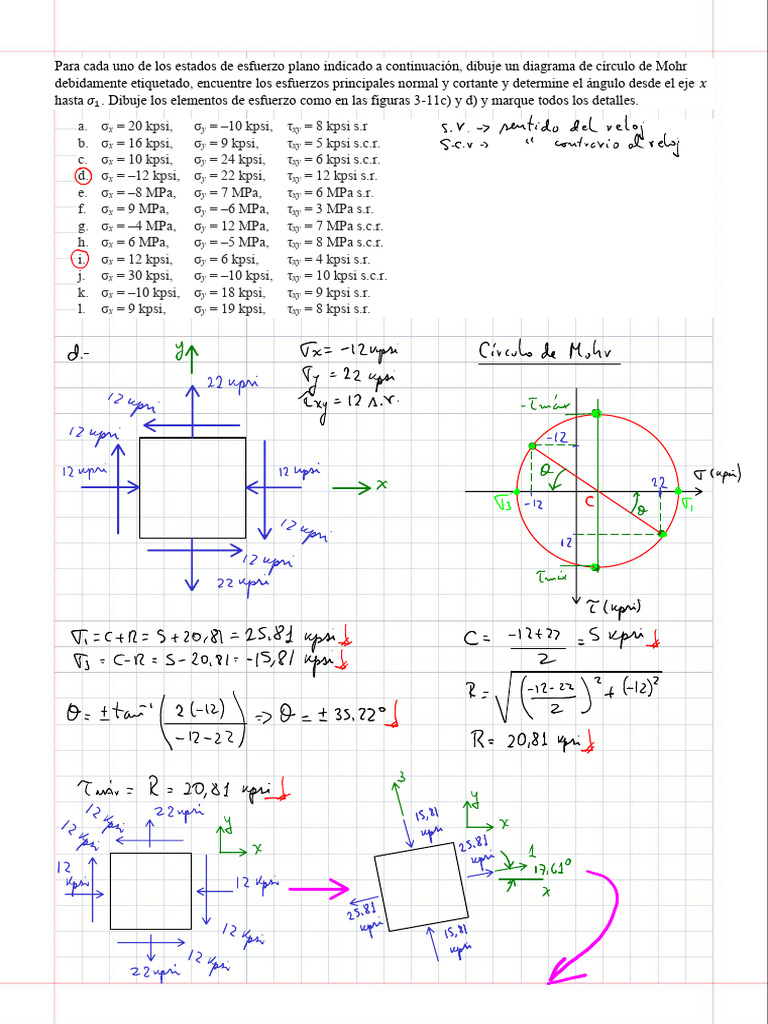 Para cada uno de los estados de esfuerzo plano indicado a continuación, dibuje un diagrama de círculo de Mohr
debidamente etiquetado, encuentre los esfuerzos principales normal y cortante y determine el ángulo desde el eje x
hasta σ₁ . Dibuje los elementos de esfuerzo como en las figuras 3-11c) y d) y marque todos los detalles.
a. σx = 20 kpsi, σy = –10 kpsi, τxy = 8 kpsi s.r
b. σx = 16 kpsi, σy = 9 kpsi, τxy = 5 kpsi s.c.r.
c. σx = 10 kpsi, σy = 24 kpsi, τxy = 6 kpsi s.c.r.
d. σx = –12 kpsi, σy = 22 kpsi, τxy = 12 kpsi s.r.
e. σx = –8 MPa, σy = 7 MPa, τxy = 6 MPa s.r.
f. σx = 9 MPa, σy = –6 MPa, τxy = 3 MPa s.r.
g. σx = –4 MPa, σy = 12 MPa, τxy = 7 MPa s.c.r.
h. σx = 6 MPa, σy = –5 MPa, τxy = 8 MPa s.c.r.
i. σx = 12 kpsi, σy = 6 kpsi, τxy = 4 kpsi s.r.
j. σx = 30 kpsi, σy = –10 kpsi, τxy = 10 kpsi s.c.r.
k. σx = –10 kpsi, σy = 18 kpsi, τxy = 9 kpsi s.r.
l. σx = 9 kpsi, σy = 19 kpsi, τxy = 8 kpsi s.r.
s.r. -> sentido del reloj
s.c.r -> " contrario al reloj
d.-
y
22 kpsi
12 kpsi
12 kpsi
12 kpsi
12 kpsi
x
12 kpsi
12 kpsi
22 kpsi
σx = -12 kpsi
σy = 22 kpsi
τxy = 12 s.r.
Círculo de Mohr
-τmáx
-12
θ
22
σ (kpsi)
σ3
-12
C
θ
σ1
12
τmáx
τ (kpsi)
σ1 = C+R = 5+20,81 = 25.81 kpsi
σ3 = C-R = 5-20,81 = -15,81 kpsi
C = (-12+22)/2 = 5 kpsi
θ = ± tan⁻¹ (2(-12)/(-12-22)) => θ = ± 35.22°
R = √(((-12-22)/2)² + (-12)²)
R = 20,81 kpsi
τmáx = R = 20,81 kpsi
12 kpsi
22 kpsi
12 kpsi
y
x
12 kpsi
12 kpsi
12 kpsi
12 kpsi
22 kpsi
3
15,81 kpsi
y
x
25.81 kpsi
1
17,61°
x
25.81 kpsi
15,81 kpsi